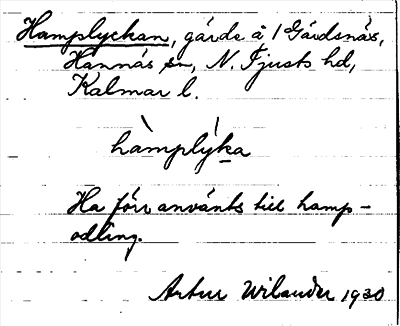 Hamplyckan, gärde å 1 Gärdsnäs,
Hannäs sn, N. Tjusts hd,
Kalmar l.
hàmplýka
Ha förr använts till hamp-
odling.
Artur Wilander 1930